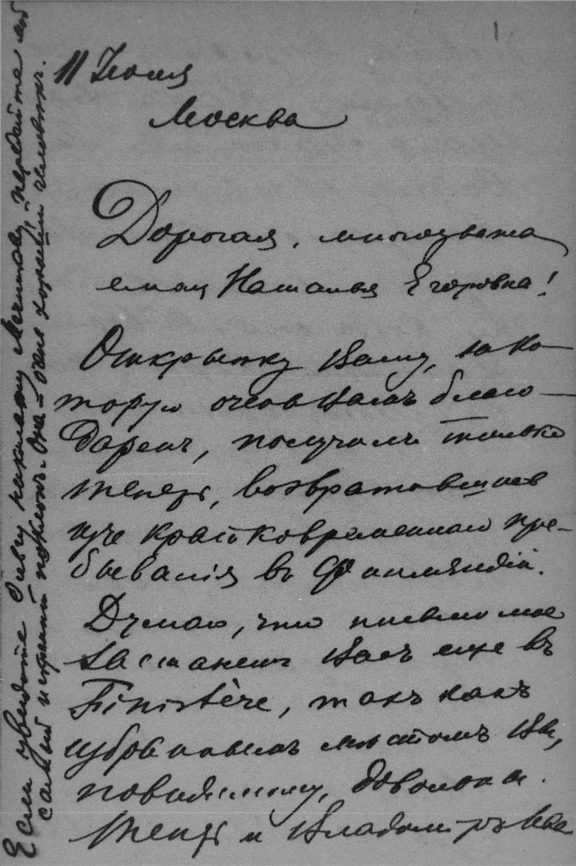 1
11 Июля
Москва
Дорогая, многоуважа
емая Наталья Егоровна!
Открытку Вашу, за ко
торую очень Вамъ благо-
даренъ, получилъ только
теперь, возвратившись
изъ кратковременнаго пре-
быванія въ Финляндіи.
Думаю, что письмо мое
застанетъ Васъ еще въ
Finistère, такъ какъ
избраннымъ мѣстомъ Вы,
повидимому, довольны.
Теперь и Владиміръ
Если увидите Ольгу Мечникову, передайте ей мой
самый искренній поклонъ. Она – очень хорошій человѣкъ.